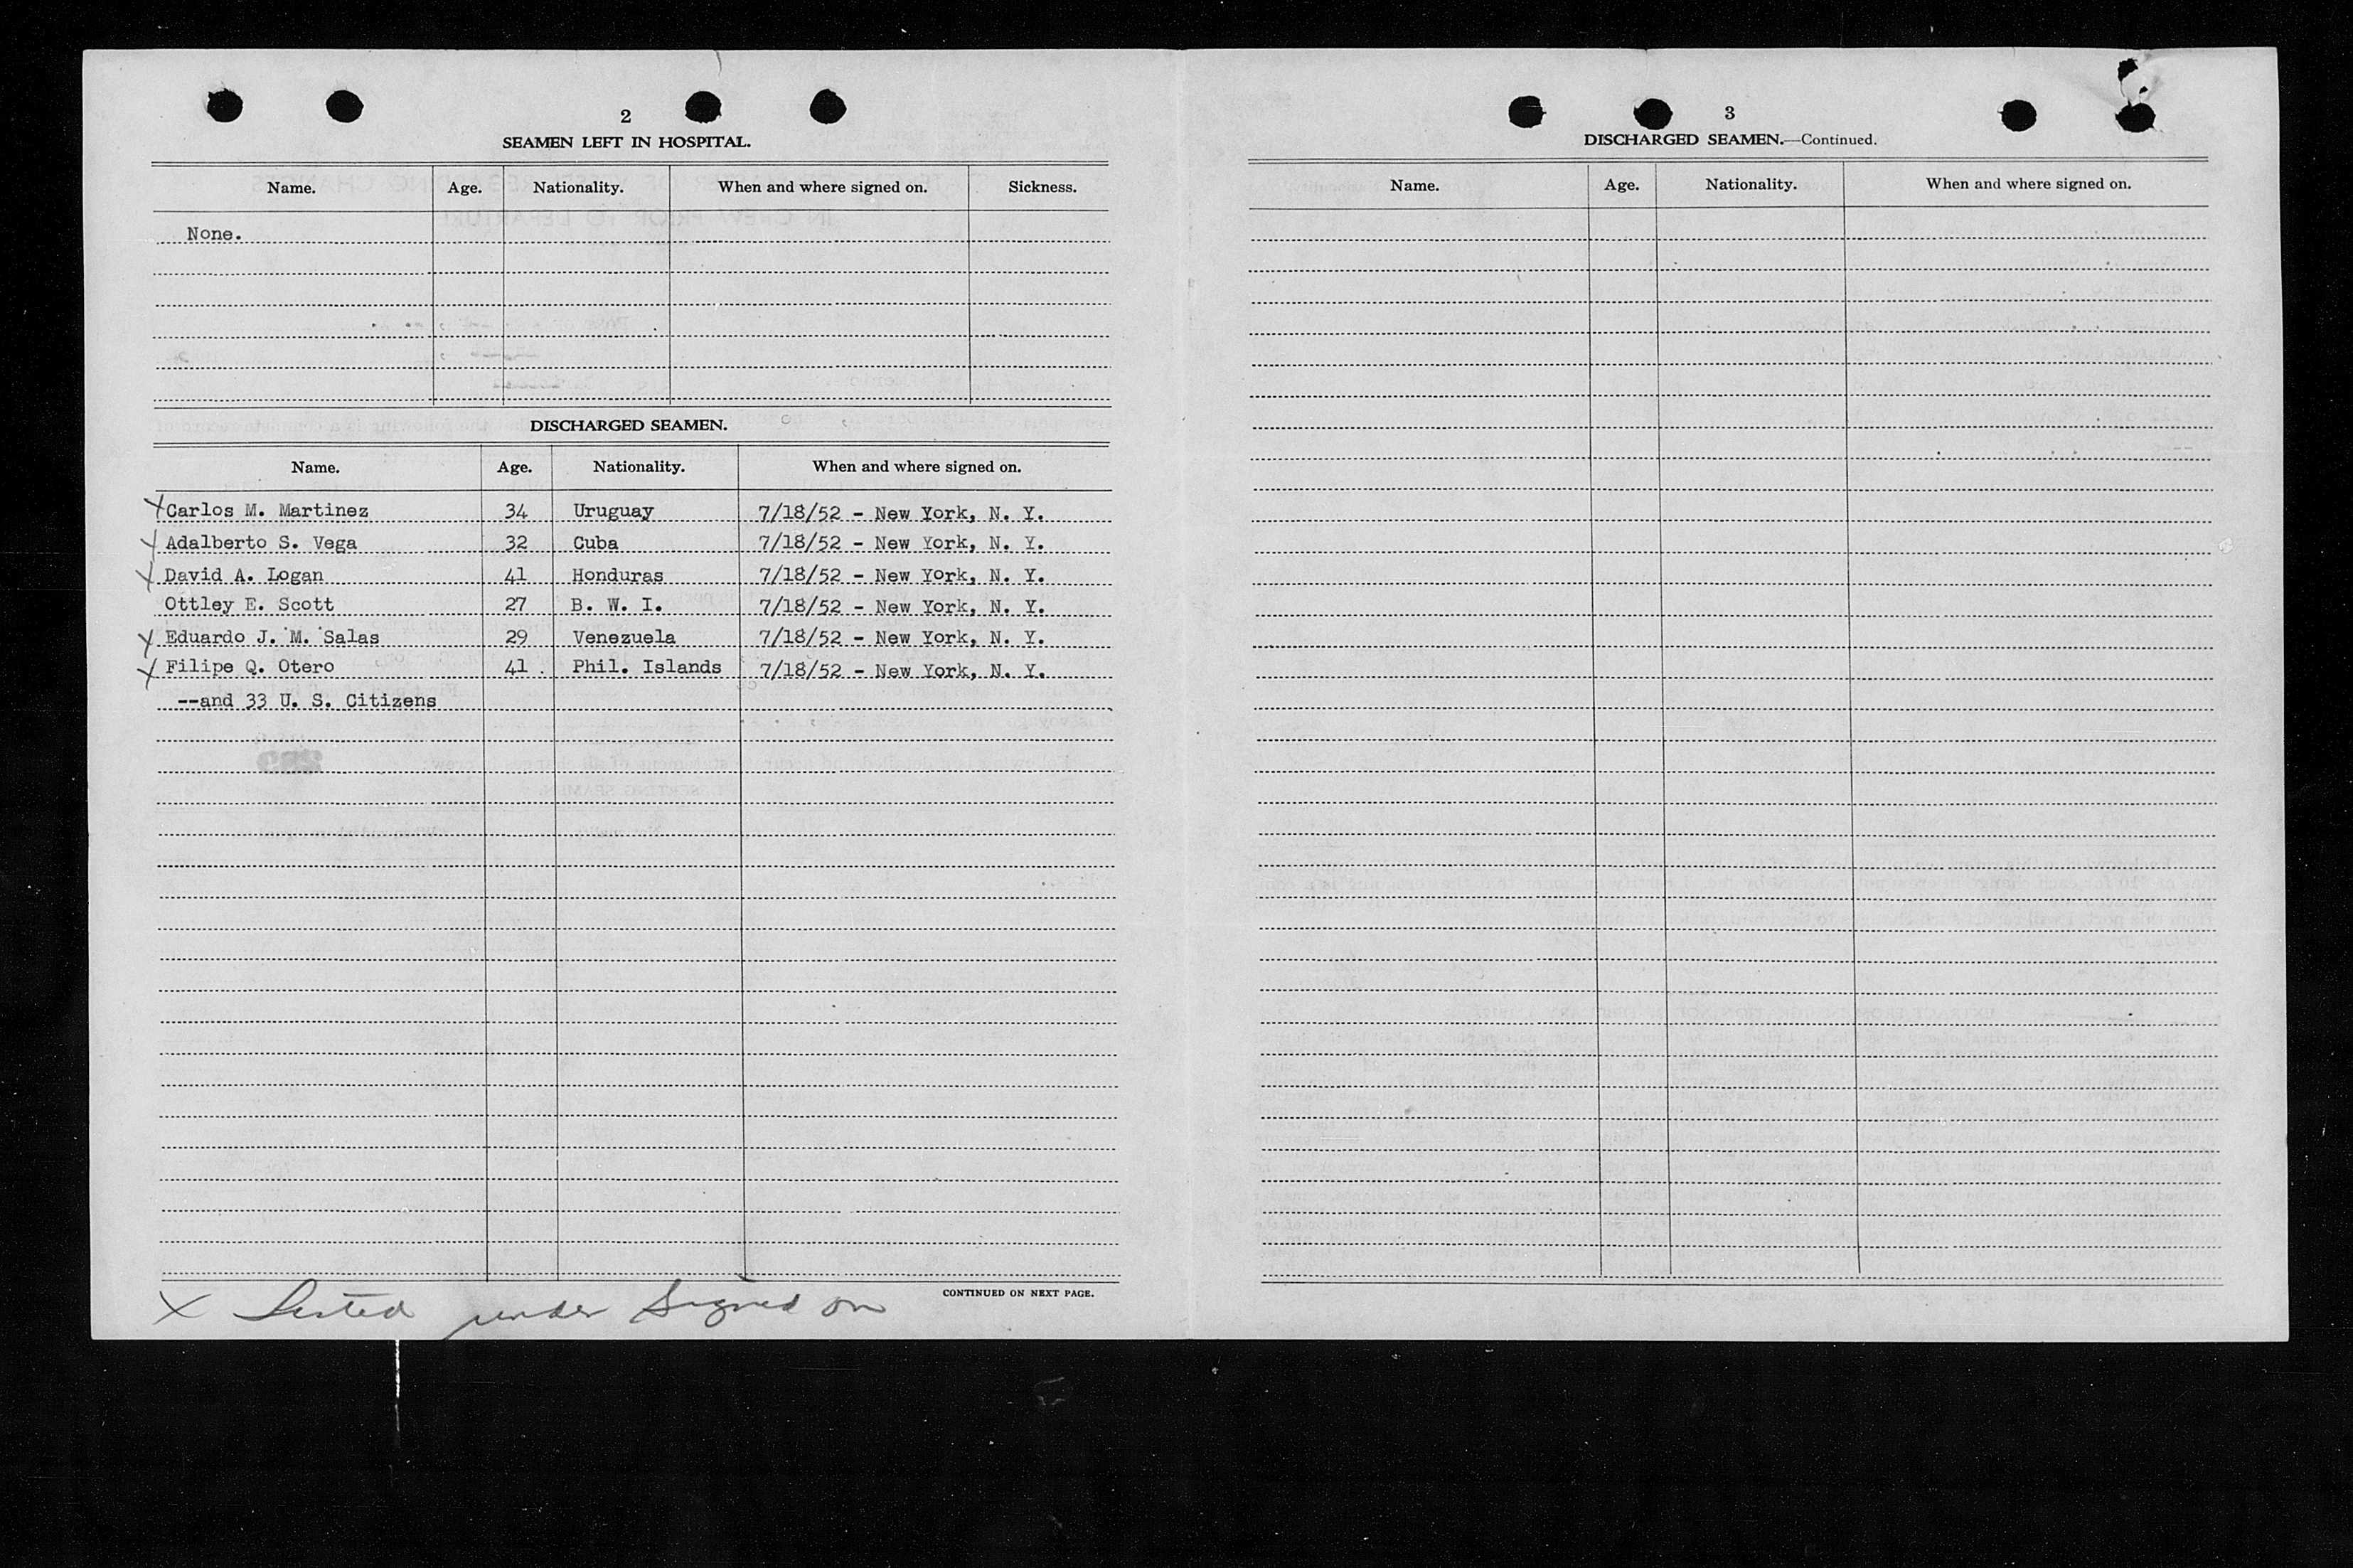 2
SEAMEN LEFT IN HOSPITAL.
Name. Age. Nationality. When and where signed on. Sickness.
None.
DISCHARGED SEAMEN.
Name. Age. Nationality. When and where signed on.
X Carlos M. Martinez 34 Uruguay 7/18/52 - New York, N. Y.
X Adalberto S. Vega 32 Cuba 7/18/52 - New York, N. Y.
X David A. Logan 41 Honduras 7/18/52 - New York, N. Y.
Ottley E. Scott 27 B. W. I. 7/18/52 - New York, N. Y.
X Eduardo J. M. Salas 29 Venezuela 7/18/52 - New York, N. Y.
X Filipe Q. Otero 41 Phil. Islands 7/18/52 - New York, N. Y.
--and 33 U. S. Citizens
CONTINUED ON NEXT PAGE.
X Listed under Signed on
3
DISCHARGED SEAMEN.—Continued.
Name. Age. Nationality. When and where signed on.